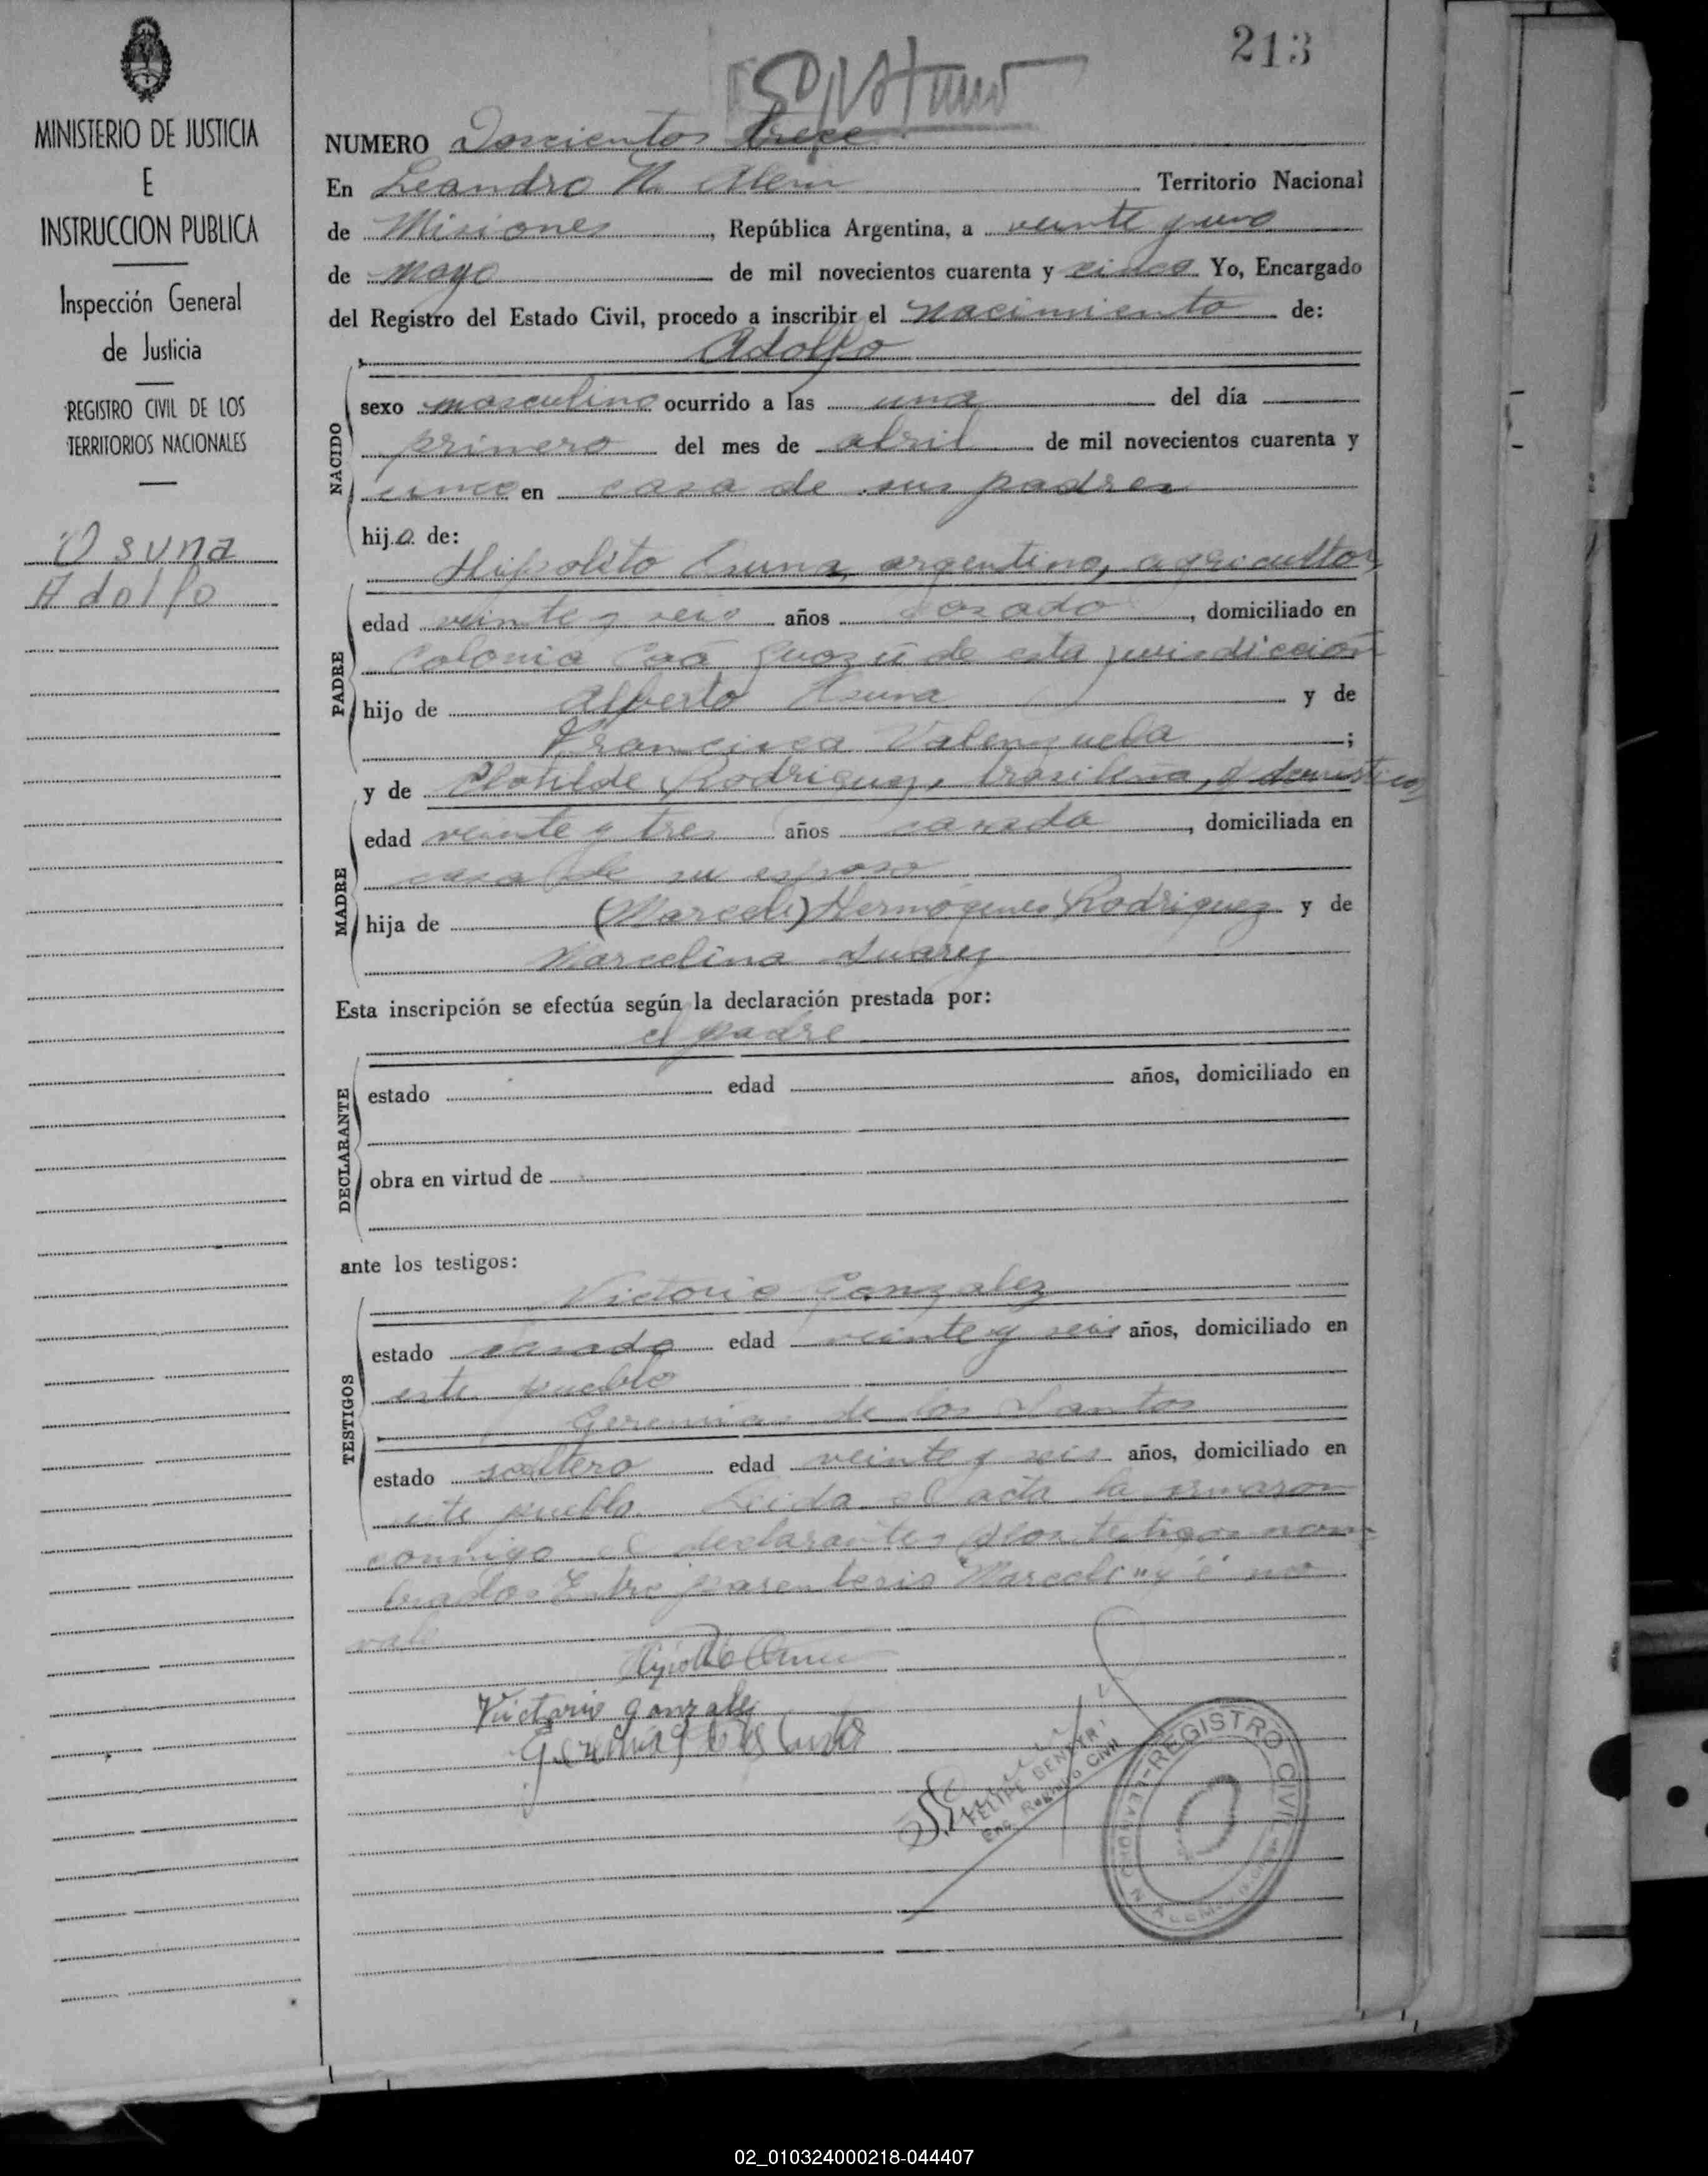 213
MINISTERIO DE JUSTICIA
E
INSTRUCCION PUBLICA
Inspección General
de Justicia
REGISTRO CIVIL DE LOS
TERRITORIOS NACIONALES
Osuna
Adolfo
NUMERO Doscientos trece
En Leandro N. Alem Territorio Nacional
de Misiones, República Argentina, a veinte y uno
de mayo de mil novecientos cuarenta y cinco Yo, Encargado
del Registro del Estado Civil, procedo a inscribir el nacimiento de:
Adolfo
NACIDO
sexo masculino ocurrido a las una del día
primero del mes de abril de mil novecientos cuarenta y
cinco en casa de sus padres
hijo de:
Hipolito Osuna, argentino, agricultor,
PADRE
edad veinte y seis años casado, domiciliado en
Colonia Caá Guazú de esta jurisdicción
hijo de Alberto Osuna y de
Francisca Valenzuela;
y de Clotilde Rodriguez, brasileña, q domestica,
MADRE
edad veinte y tres años casada, domiciliada en
casa de su esposo
hija de (Marceli) Hermógenes Rodriguez y de
Marcelina Suarez
Esta inscripción se efectúa según la declaración prestada por:
el padre
DECLARANTE
estado edad años, domiciliado en
obra en virtud de
ante los testigos:
Victorio Gonzalez
TESTIGOS
estado casado edad veinte y seis años, domiciliado en
este pueblo
Geremias de los Santos
estado soltero edad veinte y seis años, domiciliado en
este pueblo. Leida el acta la firmaron
conmigo el declarante y los testigos nom
brados Entre parentesis "Marceli" y "é" no
vale
Hipolito Osuna
Victorio Gonzalez
Geremias de los Santos
FELIPE
Enc. Registro Civil
REGISTRO CIVIL
LEANDRO N. ALEM
02_010324000218-044407